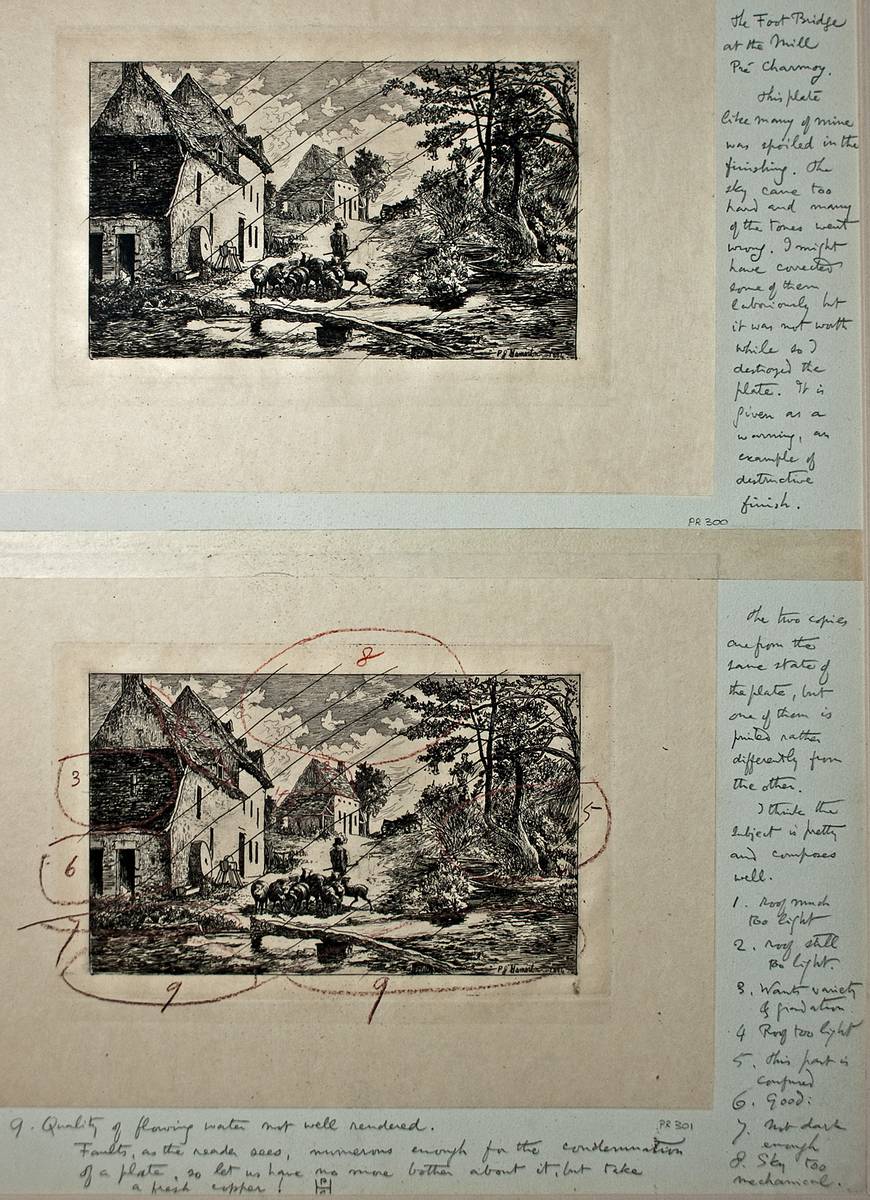 The Foot Bridge
at the Mill
Pré Charmoy.
This plate
like many of mine
was spoiled in the
finishing. The
sky came too
hard and many
of the tones went
wrong. I might
have corrected
some of them
laboriously but
it was not worth
while so I
destroyed the
plate. It is
given as a
warning, an
example of
destructive
finish.
PR 300
The two copies
are from the
same state of
the plate, but
one of them is
printed rather
differently from
the other.
I think the
subject is pretty
and composes
well.
1. Roof much
too light
2. roof still
too light.
3. Wants variety
of gradation.
4 Roof too light
5. This part is
confused
6. Good.
7. Not dark
enough
8. Sky too
mechanical.
8
3
5
6
7
9
9
PR 301
9. Quality of flowing water not well rendered.
Faults, as the reader sees, numerous enough for the condemnation
of a plate, so let us have no more bother about it, but take
a fresh copper!